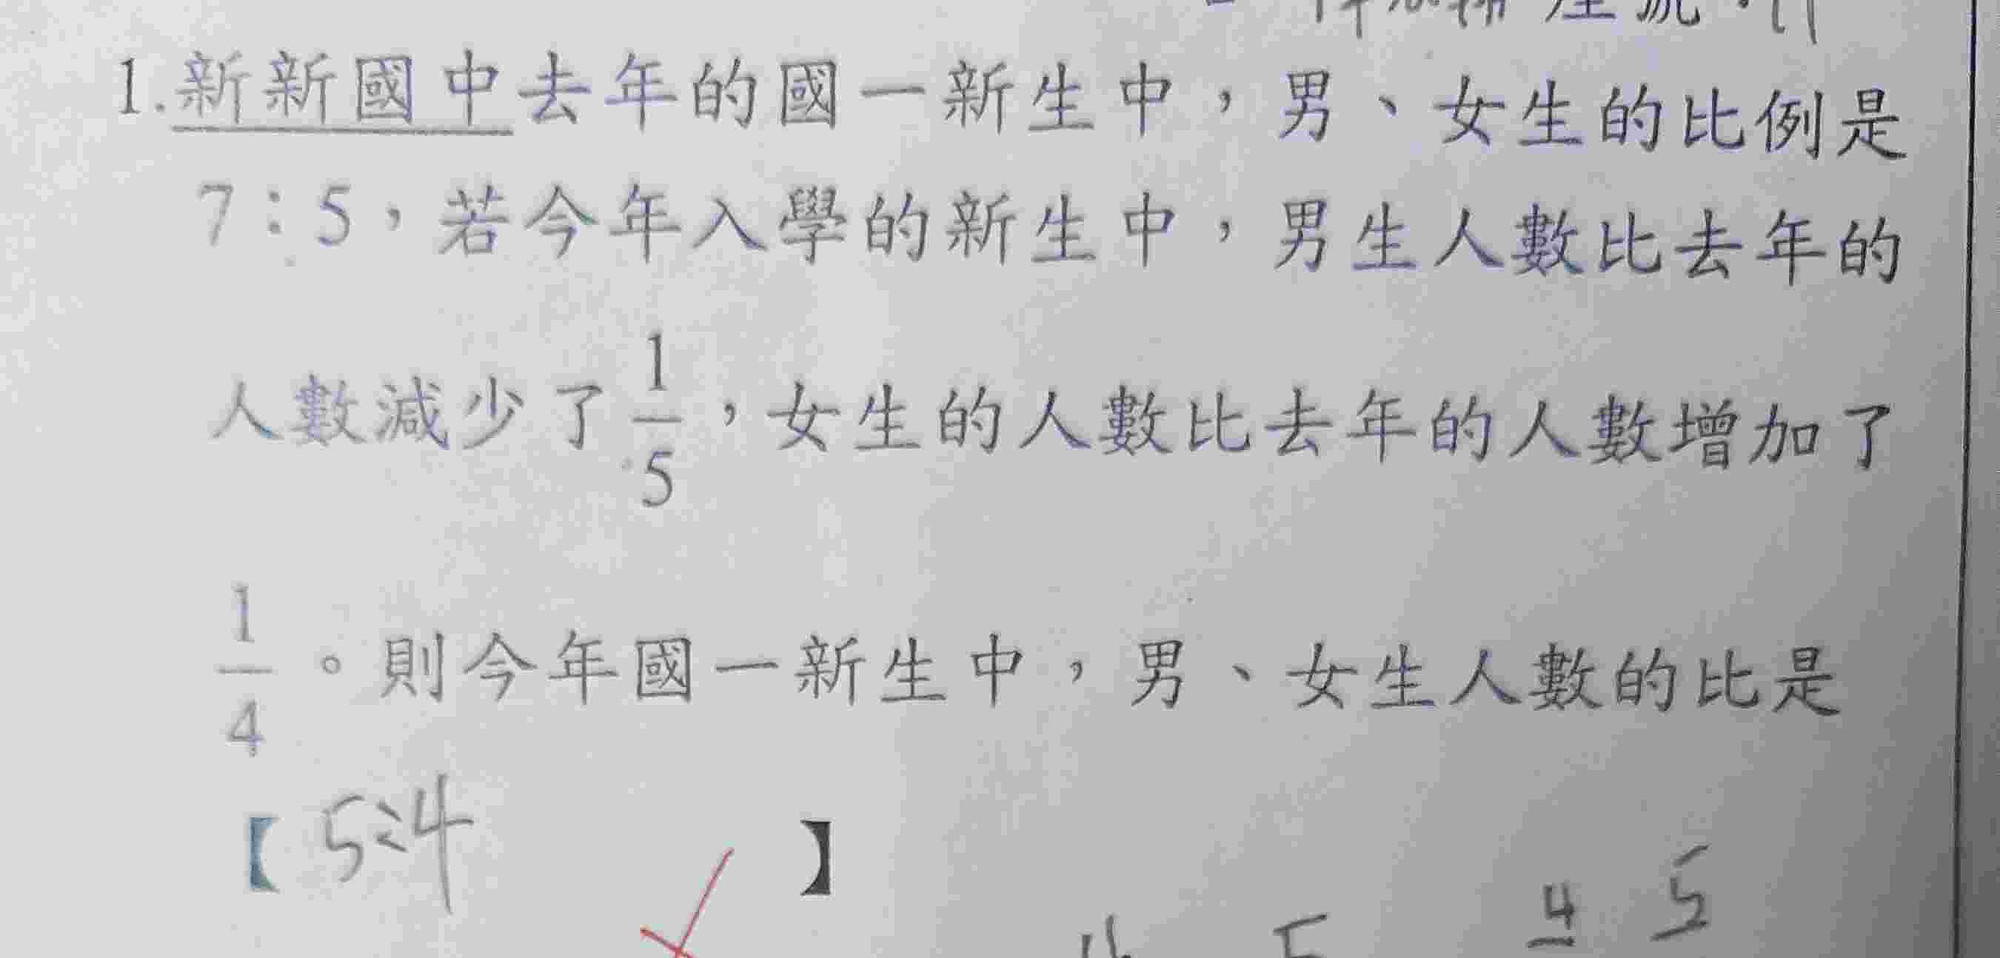 座號:
1.新新國中去年的國一新生中，男、女生的比例是
7：5，若今年入學的新生中，男生人數比去年的
人數減少了1/5，女生的人數比去年的人數增加了
1/4。則今年國一新生中，男、女生人數的比是
【 5:4 】
4 5